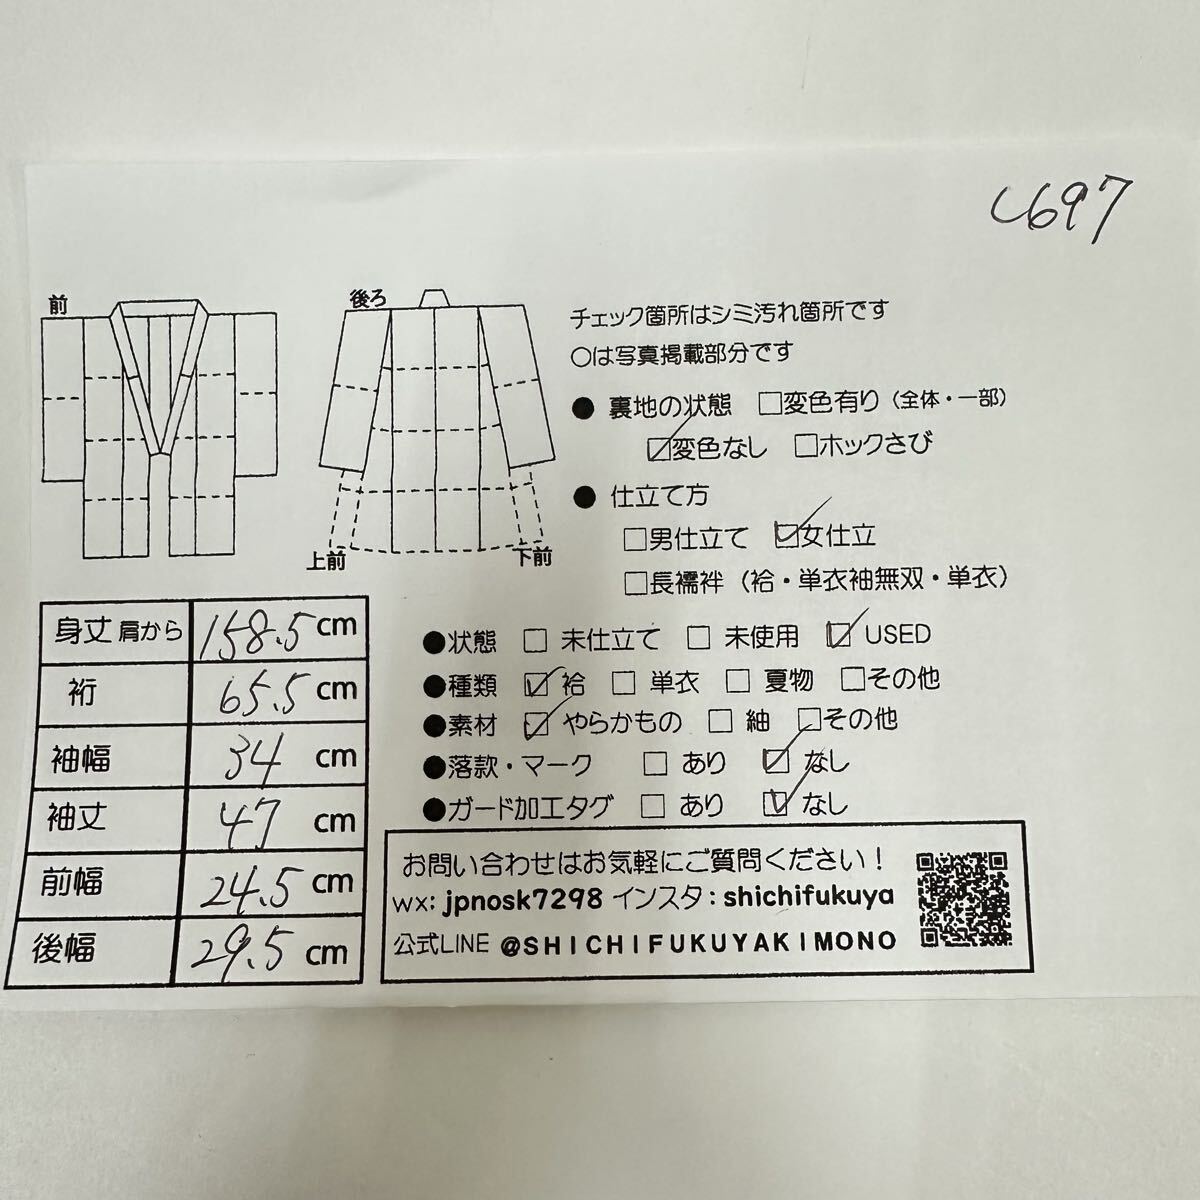 し697
前
後ろ
上前
下前
チェック箇所はシミ汚れ箇所です
○は写真掲載部分です
● 裏地の状態 □変色有り（全体・一部）
☑変色なし □ホックさび
● 仕立て方
□男仕立て ☑女仕立
□長襦袢（袷・単衣袖無双・単衣）
●状態 □ 未仕立て □ 未使用 ☑ USED
●種類 ☑ 袷 □ 単衣 □ 夏物 □その他
●素材 ☑ やらかもの □ 紬 □その他
●落款・マーク □ あり ☑ なし
●ガード加工タグ □ あり ☑ なし
身丈 肩から 158.5 cm
裄 65.5 cm
袖幅 34 cm
袖丈 47 cm
前幅 24.5 cm
後幅 29.5 cm
お問い合わせはお気軽にご質問ください！
wx: jpnosk7298 インスタ：shichifukuya
公式LINE @SHICHIFUKUYAKIMONO